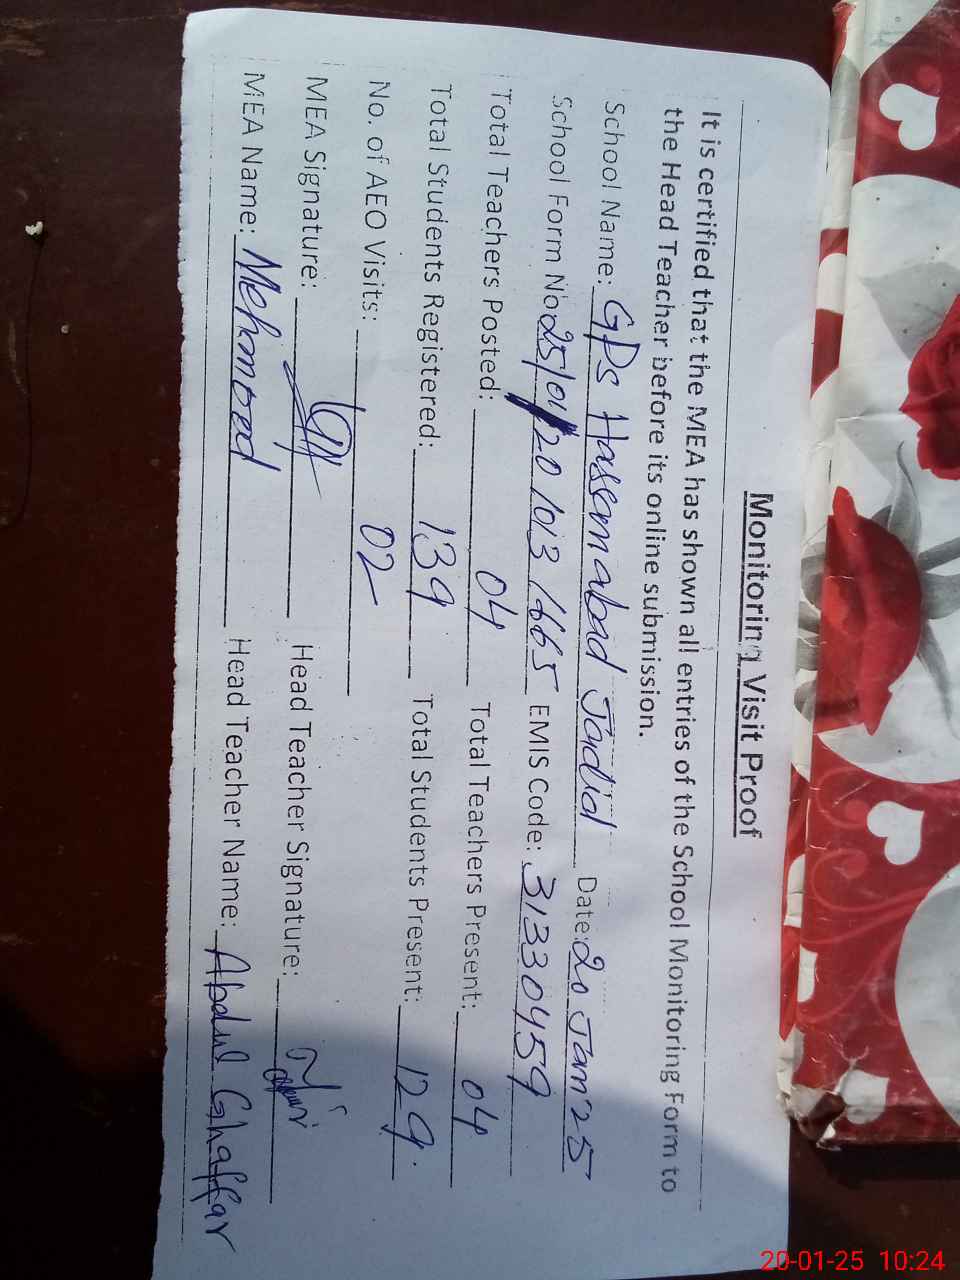 Monitoring Visit Proof
It is certified that the MEA has shown all entries of the School Monitoring Form to
the Head Teacher before its online submission.
School Name: GPS Hasemabad Jadid Date: 20 Jan 25
School Form No: 25/01/20 1013 1665 EMIS Code: 31330459
Total Teachers Posted: 04 Total Teachers Present: 04
Total Students Registered: 139 Total Students Present: 129
No. of AEO Visits: 02
MEA Signature: Head Teacher Signature:
MEA Name: Mehmood Head Teacher Name: Abdul Ghaffar
20-01-25 10:24